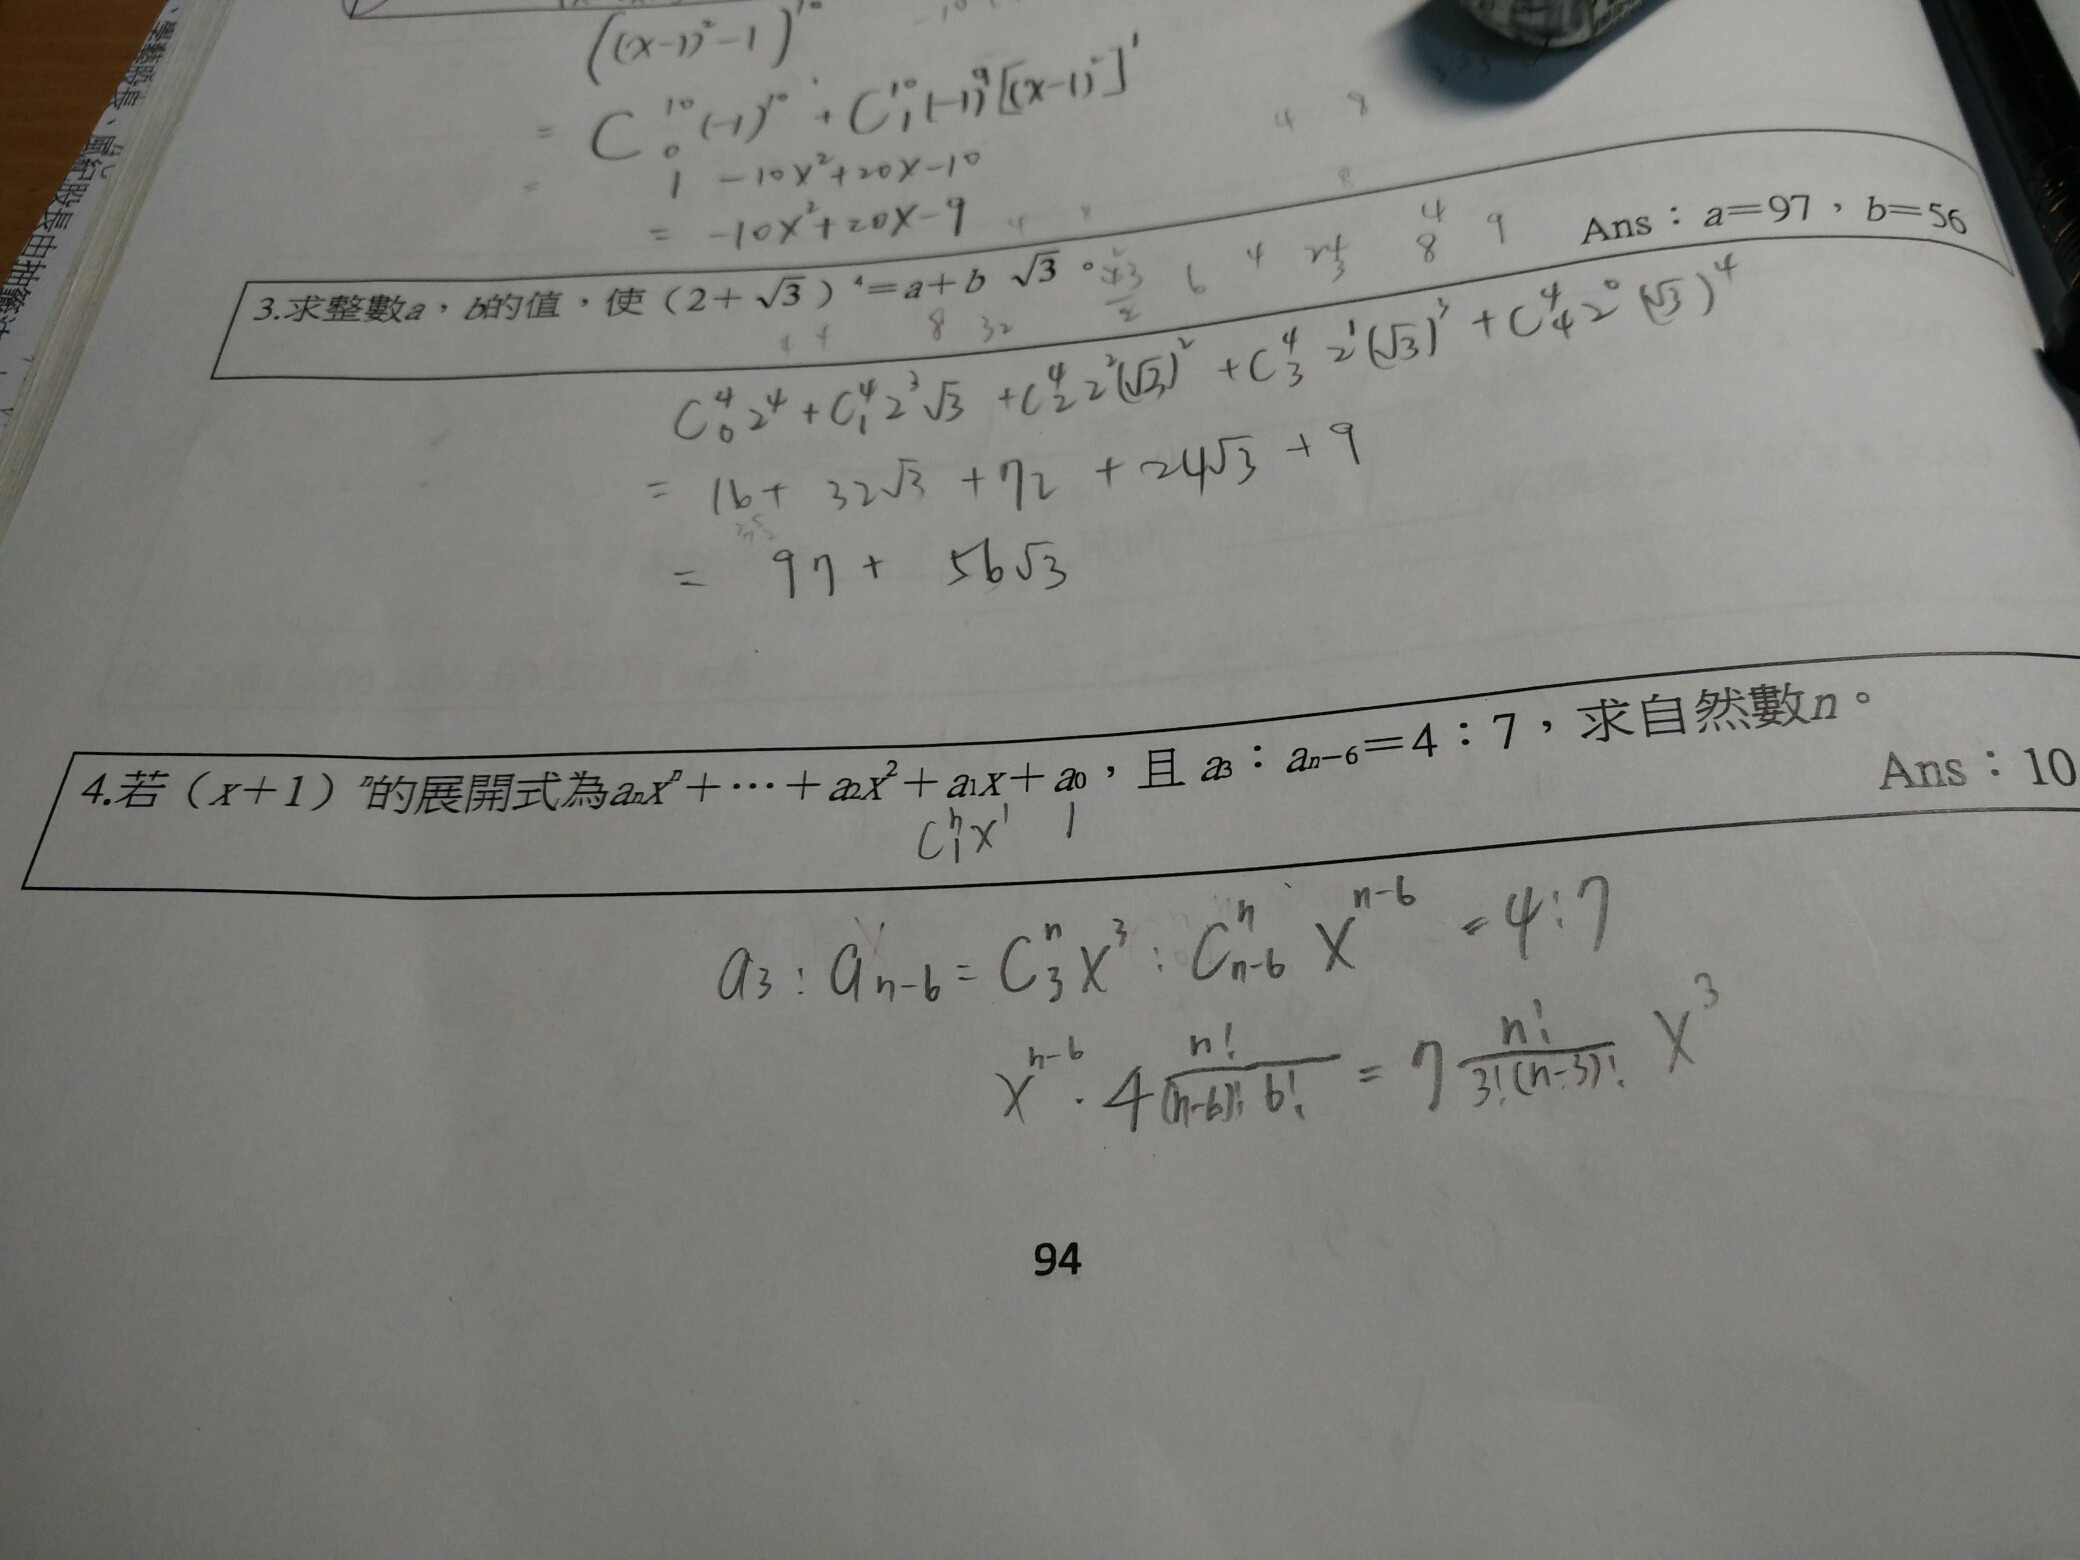 ((x-1)²-1)¹⁰
= C₀¹⁰(-1)¹⁰ + C₁¹⁰(-1)⁹[(x-1)²]¹
= 1 -10x²+20x-10
= -10x²+20x-9
Ans：a＝97，b＝56
3.求整數a，b的值，使（2＋√3）⁴＝a＋b √3 。
C₀⁴2⁴ + C₁⁴2³√3 + C₂⁴2²(√3)² + C₃⁴2¹(√3)³ + C₄⁴2⁰(√3)⁴
= 16 + 32√3 + 72 + 24√3 + 9
= 97 + 56√3
4.若（x＋1）ⁿ的展開式為aₙxⁿ＋⋯＋a₂x²＋a₁x＋a₀，且 a₃：aₙ₋₆＝4：7，求自然數n。
Ans：10
C₁ⁿx¹ 1
a₃ : aₙ₋₆ = C₃ⁿx³ : Cₙ₋₆ⁿ xⁿ⁻⁶ = 4:7
xⁿ⁻⁶ · 4 n!/((n-6)! 6!) = 7 n!/(3!(n-3)!) x³
94